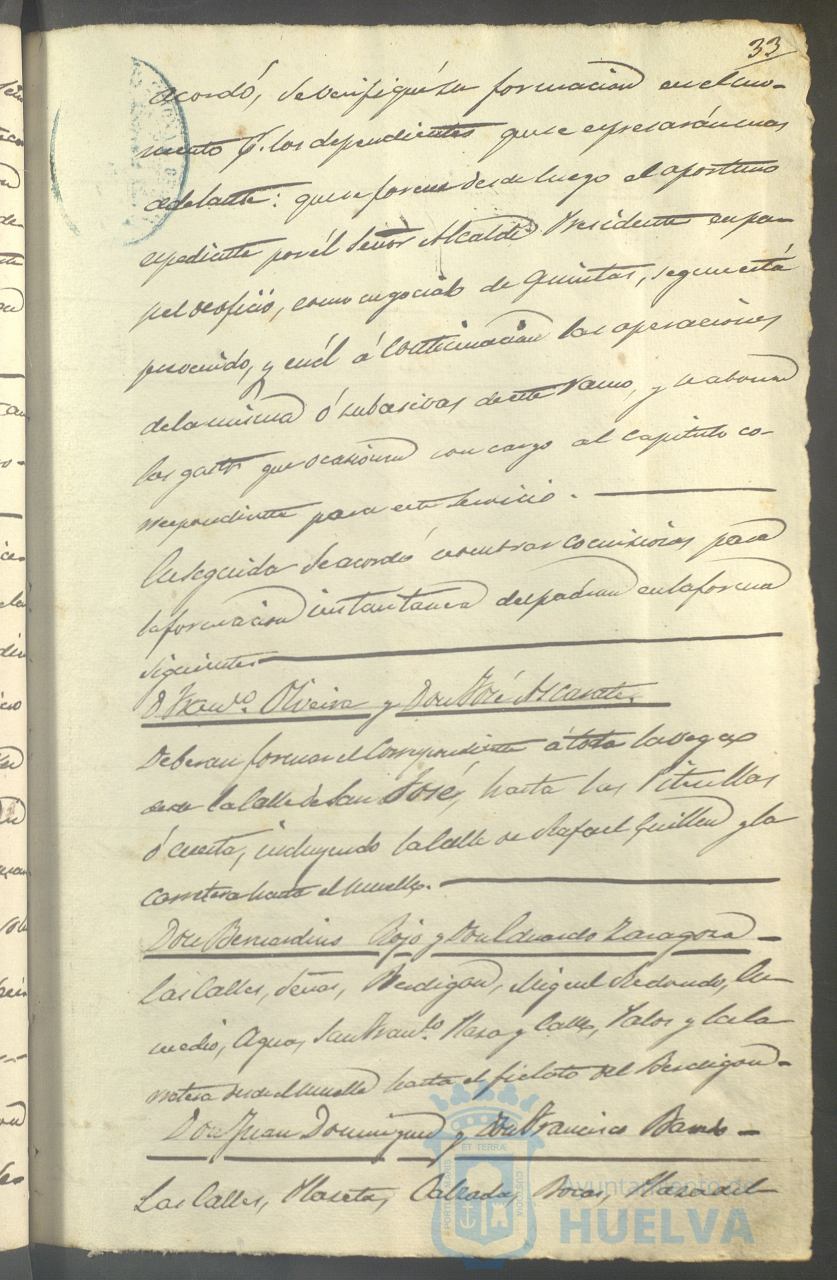 33
acordó, se verifique su formacion en el mo-
mento p.r los dependientes que se expresarán mas
adelante: que se forme desde luego el oportuno
espediente por el Señor Alcalde Presidente en pa-
pel de oficio, como negociado de Quintas, segun está
prevenido, y en él á continuacion las operaciones
de la misma ó de este ramo, y se abonen
los gastos que ocasionen con cargo al Capitulo co-
rrespondiente para este Servicio.
En seguida se acordó nombrar comisiones para
la formacion instantanea del padron en la forma
siguiente
D. Fran.co Oliveira y Don José Alcarate.
Deberan formar el correspondiente á toda la vega
desde la Calle de San José, hasta las
ó cuesta, incluyendo la Calle de Rafael Guillen y la
carretera hasta el muelle.
Don Bernardino Rojo y Don Eduardo Zaragoza
Las Calles, Señas, Berdigon, Miguel Redondo, En-
medio, Agua, San Fran.co Plaza y Calle, Palos y la Ca-
rretera desde el muelle hasta el fielato del Berdigon
Don Juan Dominguez y Don Francisco
Las Calles, Placeta, Calzada, Bocas, Plaza del
PORTUS MARIS ET TERRAE CUSTODIA
Ayuntamiento de
HUELVA